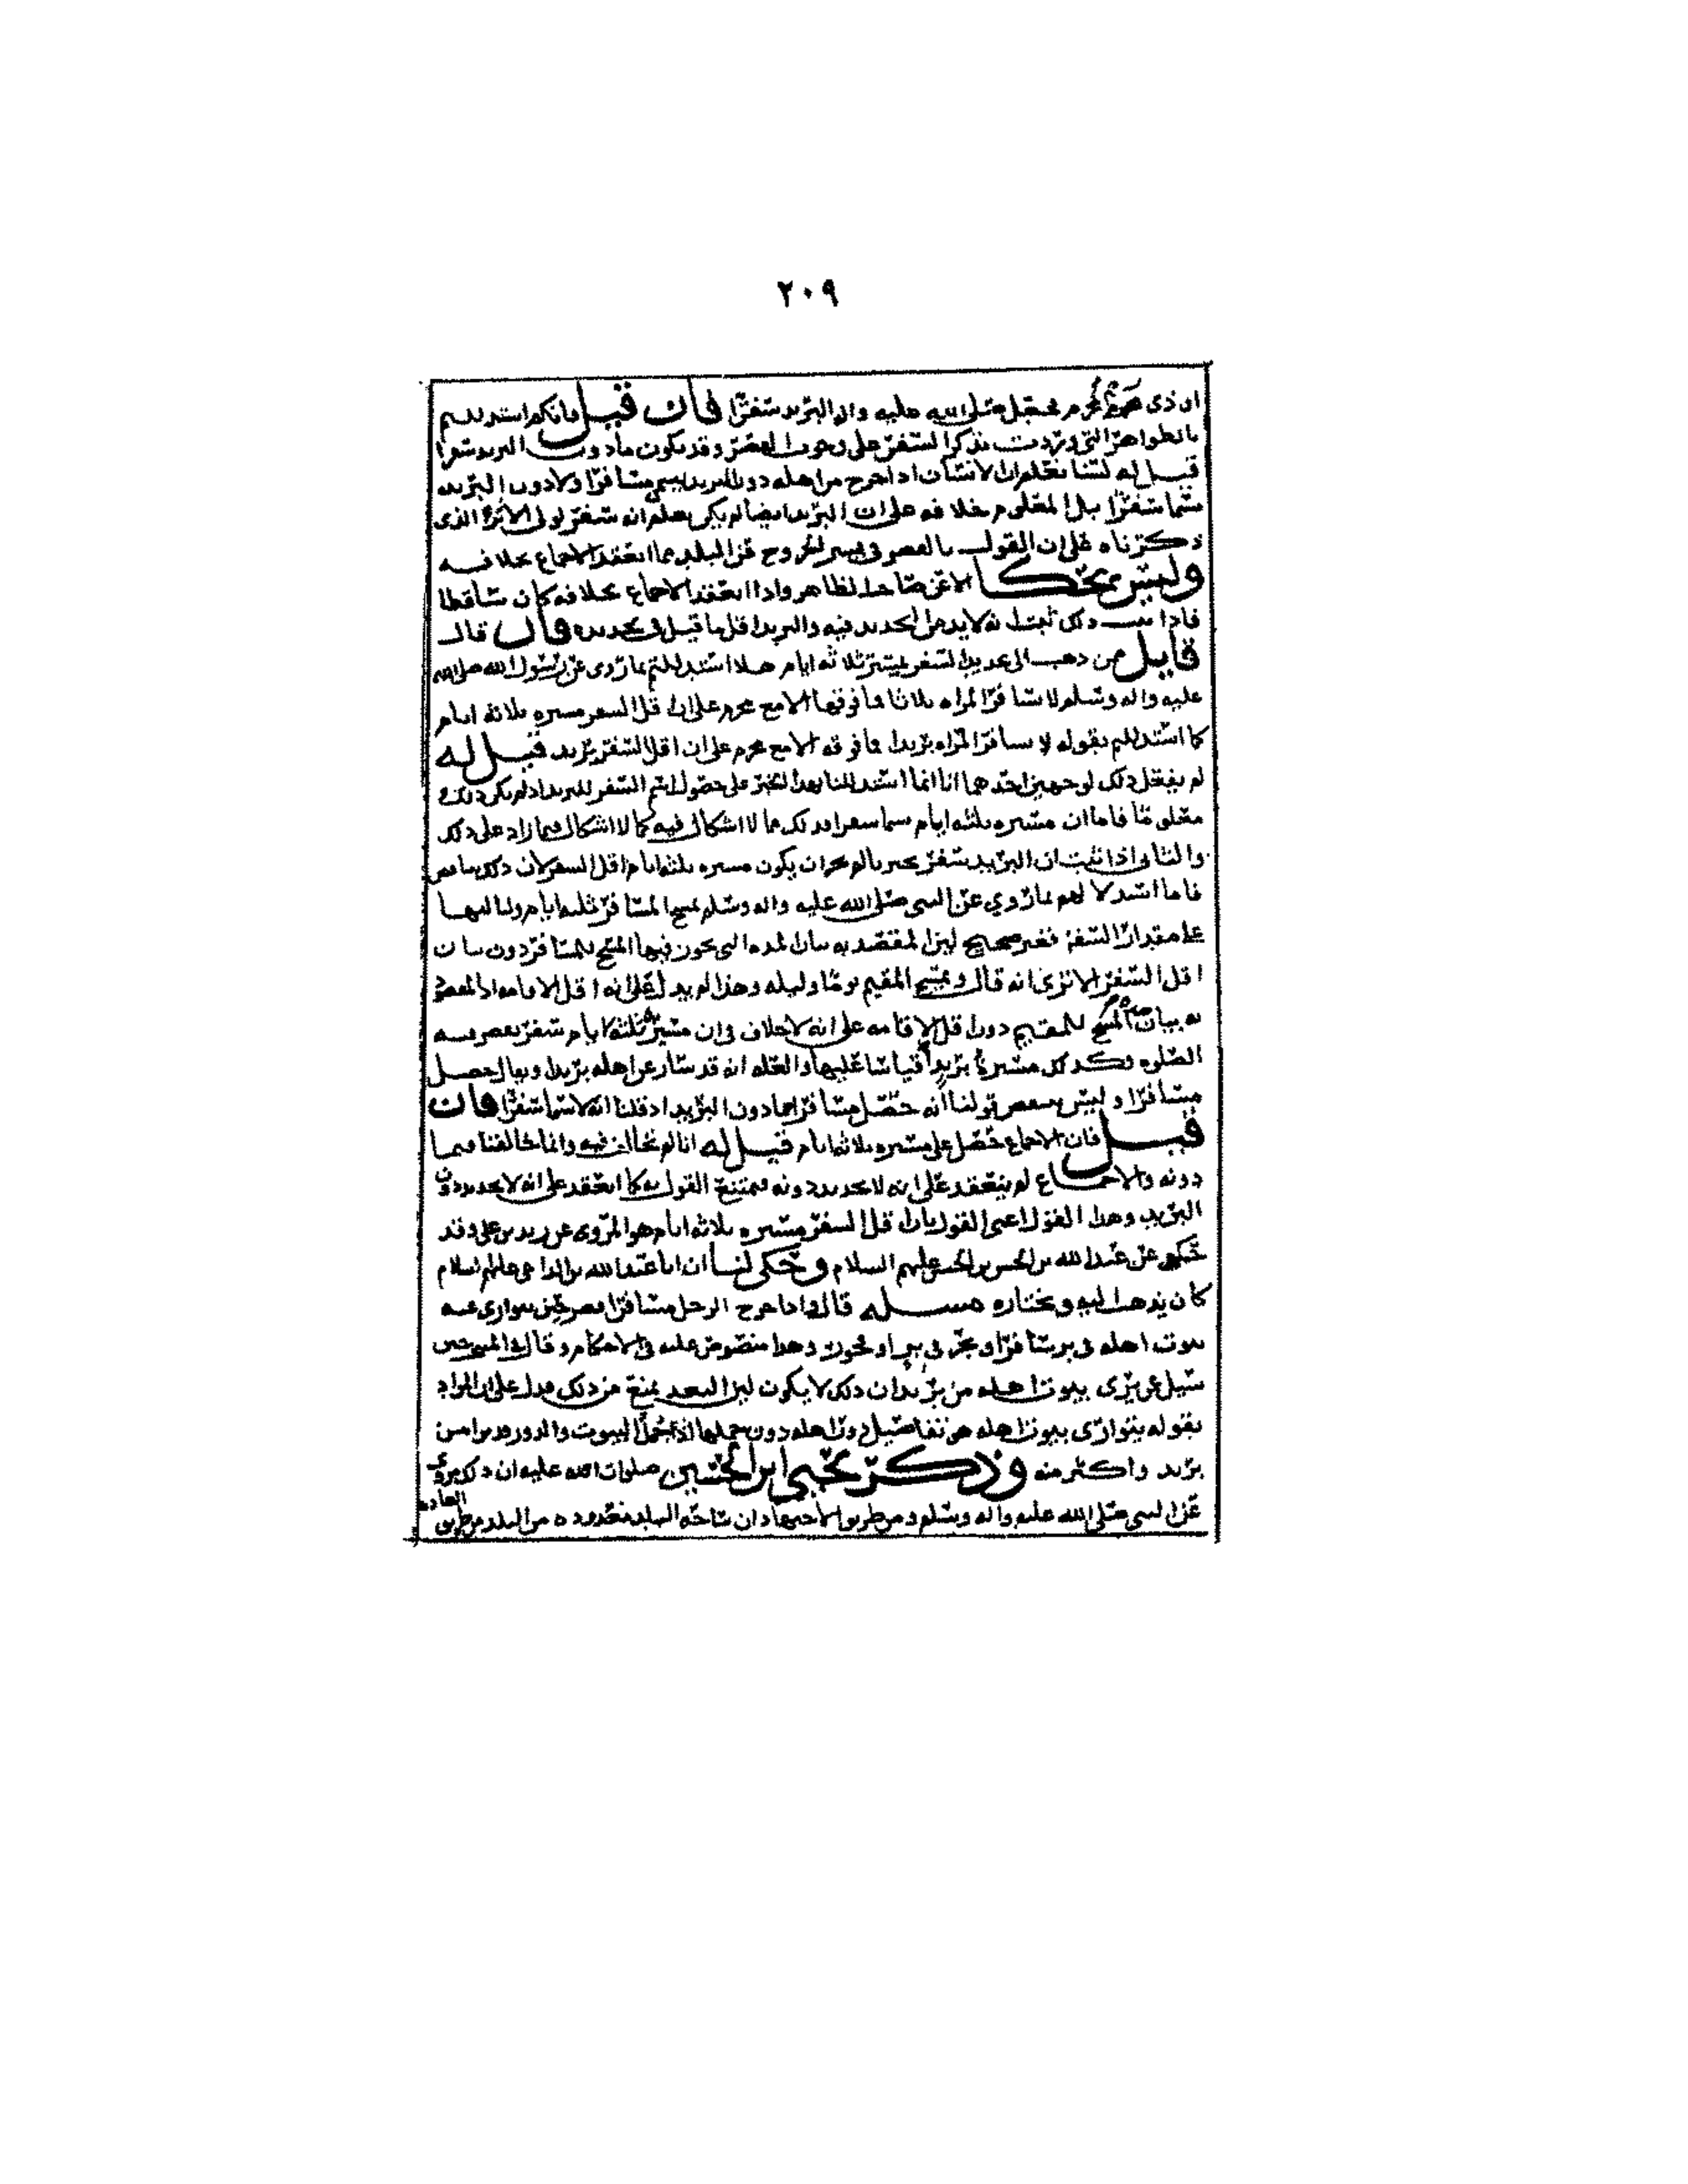 ٢٠٩
او ذى محرم محرم فجعل صلى الله عليه واله البريد سفرًا فان قيل فانكم استدللتم
بالظواهر التى وردت بذكر السفر على وجوب القصر وقد يكون مادون البريد سفرا
قيل له لسنا نعلم ان الانسان اذا خرج من اهله دون البريد يسمى مسافرًا ولا دون البريد
سمى سفرًا بل المعلوم خلافه على ان البريد ايضا لم يكن يعلم انه سفر لولى الاثر الذى
ذكرناه على ان القول بالقصر فى يسير الخروج عن البلد مما انعقد الاجماع بخلافه
وليس الاعتراضا على الظاهر واذا انعقد الاجماع بخلافه كان ساقطا
فاذا ثبت ذلك ثبت انه لا بد من التحديد فيه والبريد اقل ما قيل فى تحديده فان قال
قايل من ذهب الى تحديد السفر بمسير ثلاثه ايام هلا استدللتم بما روى عن رسول الله صلى الله
عليه واله وسلم لا تسافر المراه ثلاثا فما فوقها الا مع محرم على ان اقل السفر مسيره ثلاثه ايام
كما استدللتم بقوله لا تسافر المراه بريدا فما فوقه الا مع محرم على ان اقل السفر بريد قيل له
لم نفعل ذلك لوجهين احدهما انا انما استدللنا بهذا الخبر على حصول اسم السفر للبريد اذ لم يكن ذلك
معلوما فاما ان مسيره ثلثه ايام سما سفرا فذلك مما لا اشكال فيه كما لا اشكال فيما زاد على ذلك
والثانى اذا ثبت ان البريد سفر بخبرنا لم يجز ان يكون مسيره ثلثه ايام اقل السفر لان ذلك يتناقض
فاما استدلالهم بما روي عن النبى صلى الله عليه واله وسلم يمسح المسافر ثلثه ايام ولياليها
على مقدار السفر فغير صحيح ليس المقصد به بيان المده التى يجوز فيها المسح للمسافر دون بيان
اقل السفر الا ترى انه قال ويمسح المقيم يومًا وليله وهذا لم يدل على انه اقل الاقامه اذ المقصد
به بيان المسح للمقيم دون اقل الاقامه على انه لا خلاف فى ان مسير ثلثه ايام سفر تقصر فيه
الصلوه وكذلك مسيره بريد قياسا عليها والعله انه قد سار عن اهله بريدا
مسافرًا وليس ينقض قولنا انه حصل مسافرا مادون البريد اذ قلنا انه لا يسما سفرًا فان
قيل فان الاجماع حصل على مسيره ثلاثه ايام قيل له انا لم نخالف فيه وانما خالفنا فيما
دونه والاجماع لم ينعقد على انه لا تحديد دونه فيمتنع القول به كما انعقد على انه لا تحديد دون
البريد وهذا القول اعنى القول بان اقل السفر مسيره ثلاثه ايام هو المروى عن زيد بن على وقد
حكى عن عبد الله بن الحسن بن الحسن عليهم السلام وحكى لنا ان ابا عبد الله بن الداعى عليهم السلام
كان يذهب اليه ويختاره مسـله قال واذا خرج الرجل مسافرًا قصر حين تتوارى عنه
بيوت اهله فى بر سافر او بحر وهذا منصوص عليه فى الاحكام وقال فى المنتخب حين
سيل عمن يرى بيوت اهله من بريد ان ذلك لا يكون ليس البعد يمنع من ذلك فدل على ان المراد
بقوله يتوارى بيوت اهله هى تفاصيل دور اهله دون جملها اذ جمل البيوت والدور قد يرا من
بريد واكثر منه وذكر يحيى ابن الحسين صلوات الله عليه ان ذلك مروى
عن النبى صلى الله عليه واله وسلم ومن طريق الاجتهاد ان ساحه البلد معدوده من البلد من طريق
العاده